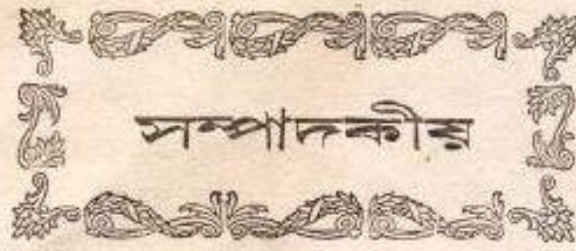 সম্পাদকীয়